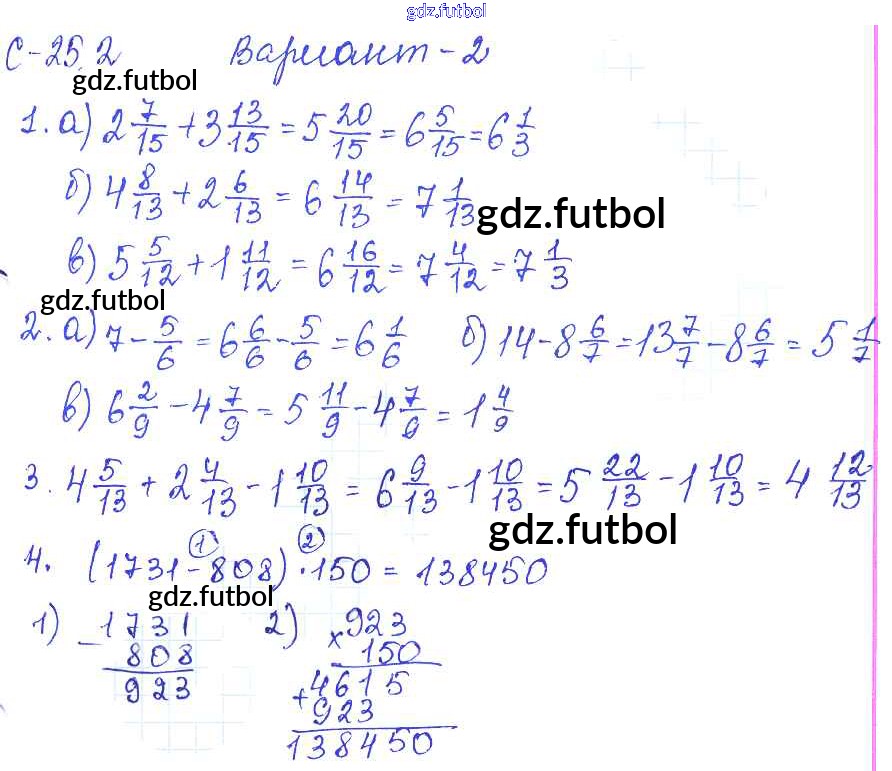 gdz.futbol
С-25.2 Вариант-2
gdz.futbol
1. а) 2 7/15 + 3 13/15 = 5 20/15 = 6 5/15 = 6 1/3
б) 4 8/13 + 2 6/13 = 6 14/13 = 7 1/13
gdz.futbol
в) 5 5/12 + 1 11/12 = 6 16/12 = 7 4/12 = 7 1/3
gdz.futbol
2. а) 7 - 5/6 = 6 6/6 - 5/6 = 6 1/6 б) 14 - 8 6/7 = 13 7/7 - 8 6/7 = 5 1/7
в) 6 2/9 - 4 7/9 = 5 11/9 - 4 7/9 = 1 4/9
3. 4 5/13 + 2 4/13 - 1 10/13 = 6 9/13 - 1 10/13 = 5 22/13 - 1 10/13 = 4 12/13
gdz.futbol
1 2
4. (1731 - 808) · 150 = 138450
gdz.futbol
1) - 1731 2) x 923
808 150
923 + 4615
923
138450